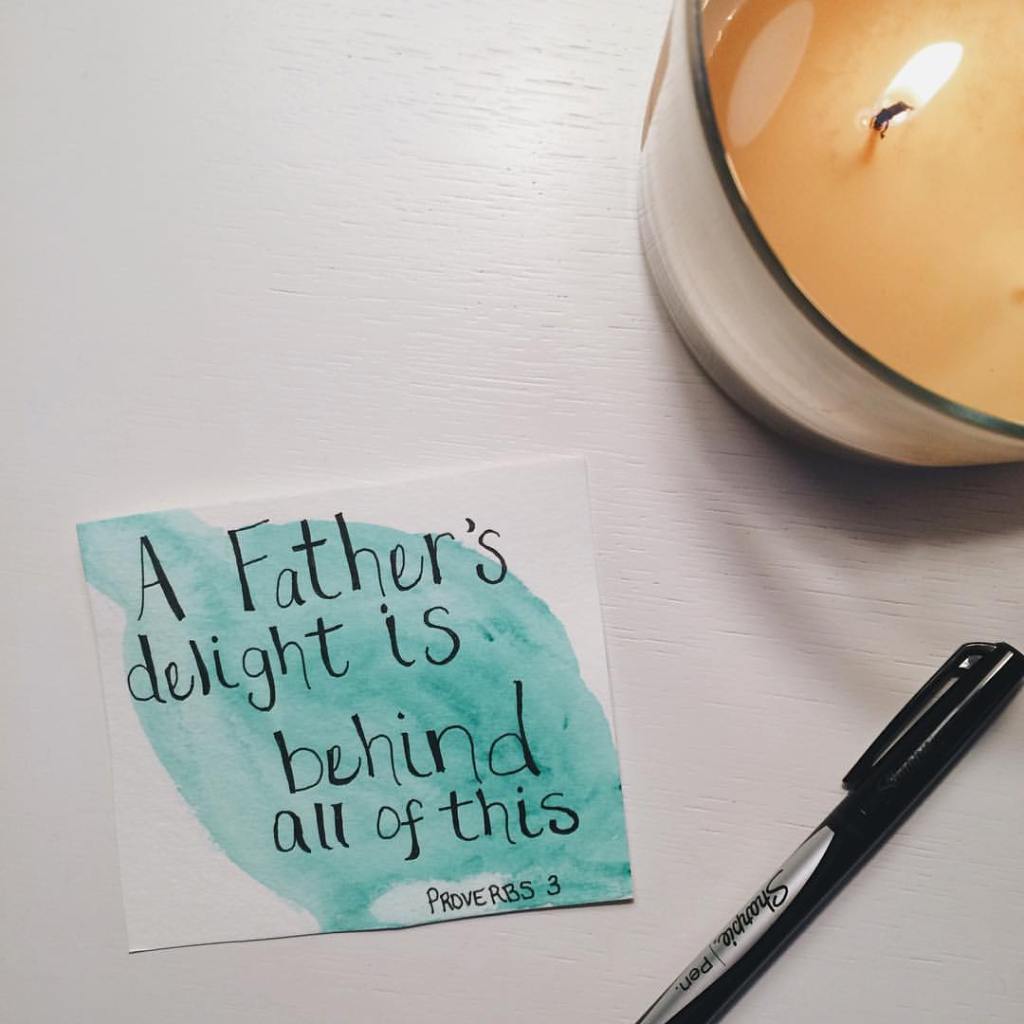 A Father's
delight is
behind
all of this
PROVERBS 3
Sharpie. | Pen.